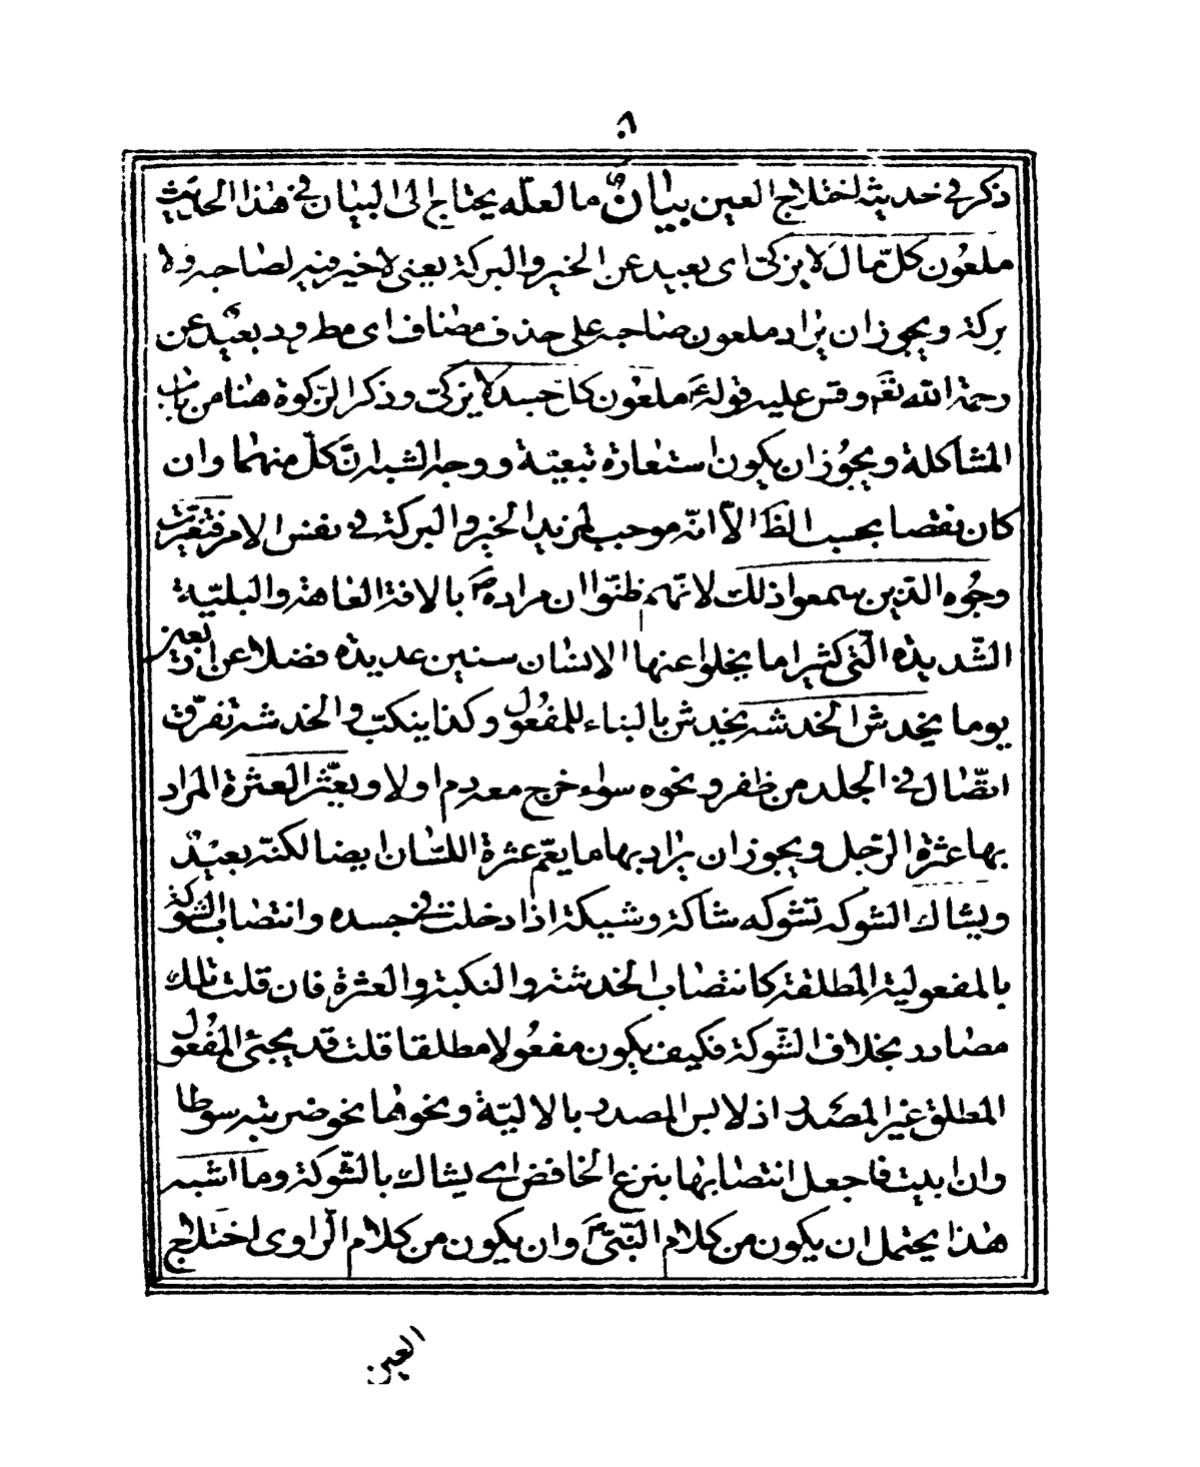 ٨
ذكر في حديثه اختلاج العين بيان ما لعله يحتاج الى البيان في هذا الحديث
ملعون كلّ مال لا يزكّى اى بعيد عن الخير والبركة يعنى لا خير فيه لصاحبه ولا
بركة ويجوز ان يراد ملعون صاحبه على حذف مضاف اى مطرود بعيد عن
رحمة الله تعم وقس عليه قوله ع ملعون كل جسد لا يزكّى وذكر الزكوة هنا من باب
المشاكلة ويجوز ان يكون استعارة تبعيّة ووجه الشبه انّ كلّ منهما وان
كان نقصا بحسب الظ الاّ انّه موجب لمزيد الخير والبركة في نفس الامر فتغيّرت
وجوه الذين سمعوا ذلك لانّهم ظنّوا ان مراده ص بالافة العاهة والبليّة
الشّديدة الّتى كثيرا ما يخلوا عنها الانسان سنين عديدة فضلا عن اربعين
يوما يخدش الخدشه يخدش بالبناء للمفعول وكذا ينكب والخدشة تفرّق
اتّصال في الجلد من ظفر ونحوه سواء خرج معه دم اولا ويعثر العثرة المراد
بها عثرة الرّجل ويجوز ان يراد بها ما يعمّ عثرة اللسان ايضا لكنّه بعيد
ويشاك الشوكه تشوكه شاكة وشيكة اذا دخلت في جسده وانتصاب الشوكة
بالمفعولية المطلقة كانتصاب الخدشة والنكبة والعثرة فان قلت تلك
مصادر بخلاف الشّوكة فكيف يكون مفعولا مطلقا قلت قد يجئ المفعول
المطلق غير المصدر اذ لابس المصدر بالالية ونحوها نحو ضربته سوطا
وان ابيت فاجعل انتصابها بنزع الخافض اى يشاك بالشّوكة وما اشبه
هذا يحتمل ان يكون من كلام النّبىّ ص وان يكون من كلام الراوى اختلاج
العين